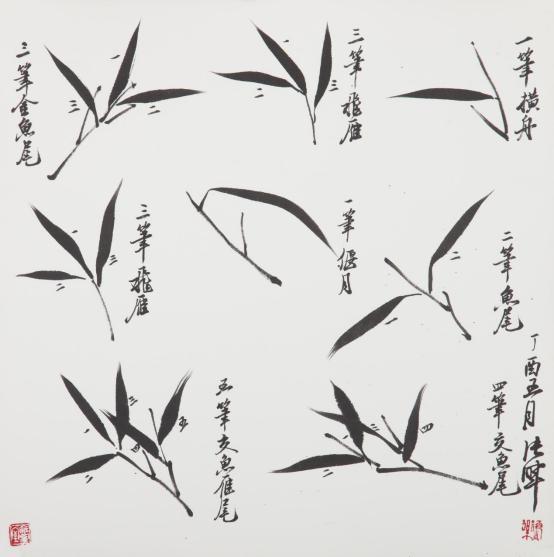 一筆横舟
三筆飛雁
一
二
三
三筆金魚尾
一
二
三
二筆魚尾
一
二
一筆偃月
三筆飛雁
一
二
三
四筆交魚尾
一
二
三
四
五筆交魚雁尾
一
二
三
四
五
丁酉五月